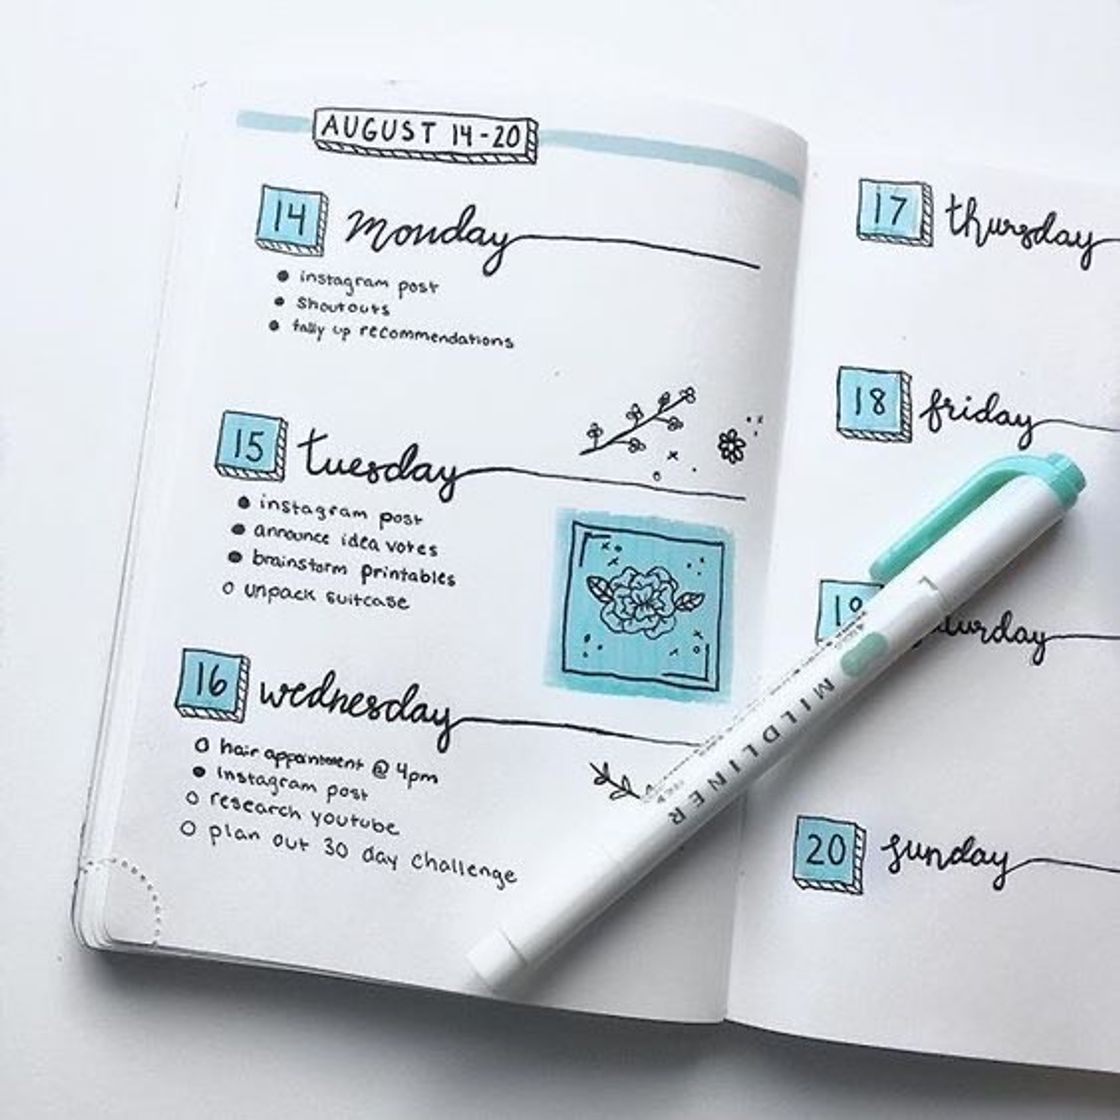 AUGUST 14-20
14 monday
instagram post
shoutouts
tally up recommendations
15 tuesday
instagram post
announce idea votes
brainstorm printables
unpack suitcase
16 wednesday
hair appointment @ 4pm
instagram post
research youtube
plan out 30 day challenge
17 thursday
18 friday
19 saturday
20 sunday
MILDLINER